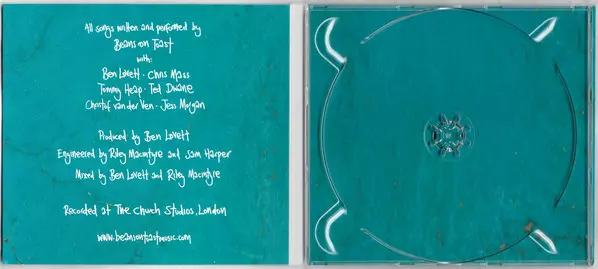 All songs written and performed by
Beans on Toast
with:
Ben Lovett · Chris Maas
Tommy Heap · Ted Dwane
Christof van der Ven · Jess Morgan
Produced by Ben Lovett
Engineered by Riley Macintyre and Sam Harper
Mixed by Ben Lovett and Riley Macintyre
Recorded at The Church Studios, London
www.beansontoastmusic.com